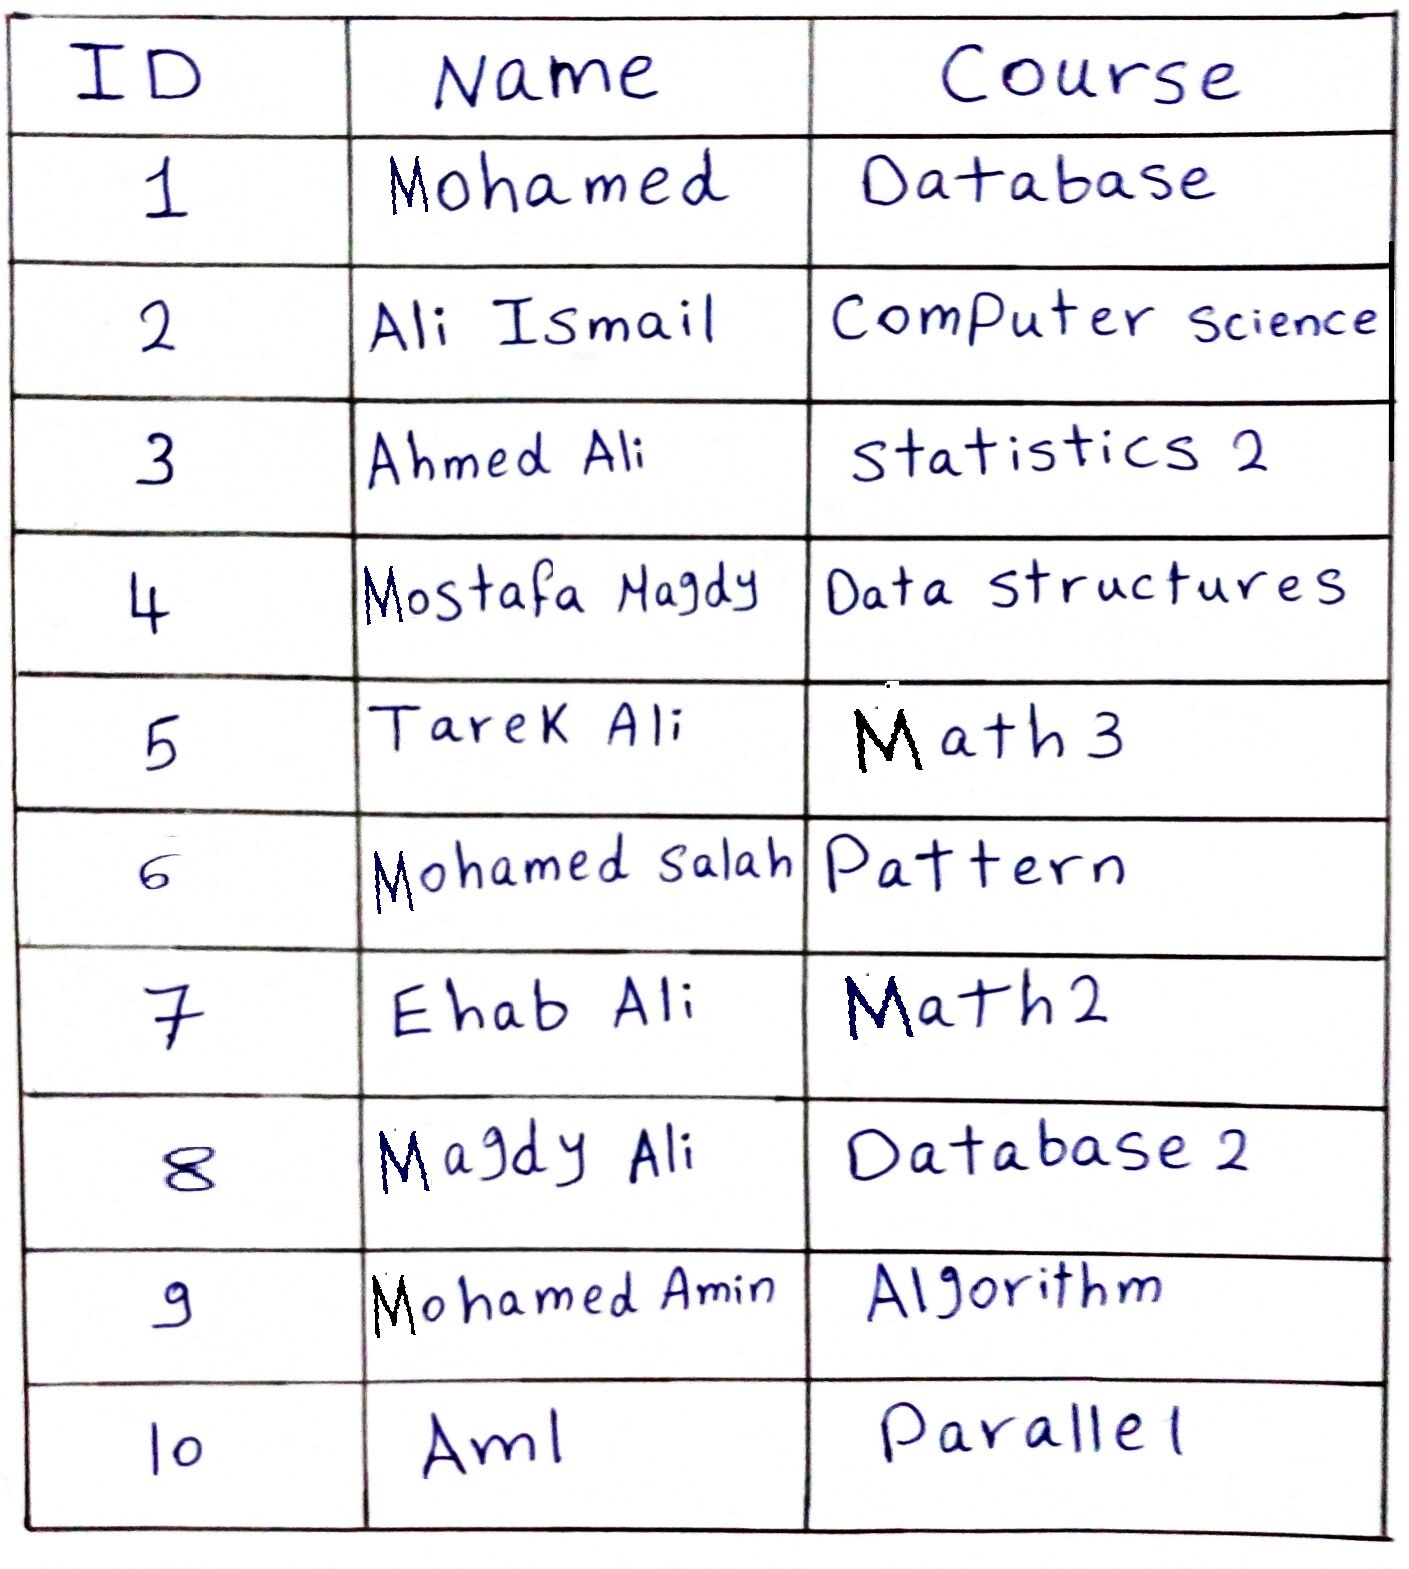 ID Name Course
1 Mohamed Database
2 Ali Ismail Computer science
3 Ahmed Ali statistics 2
4 Mostafa Magdy Data structures
5 Tarek Ali Math 3
6 Mohamed salah Pattern
7 Ehab Ali Math 2
8 Magdy Ali Database 2
9 Mohamed Amin Algorithm
10 Aml Parallel